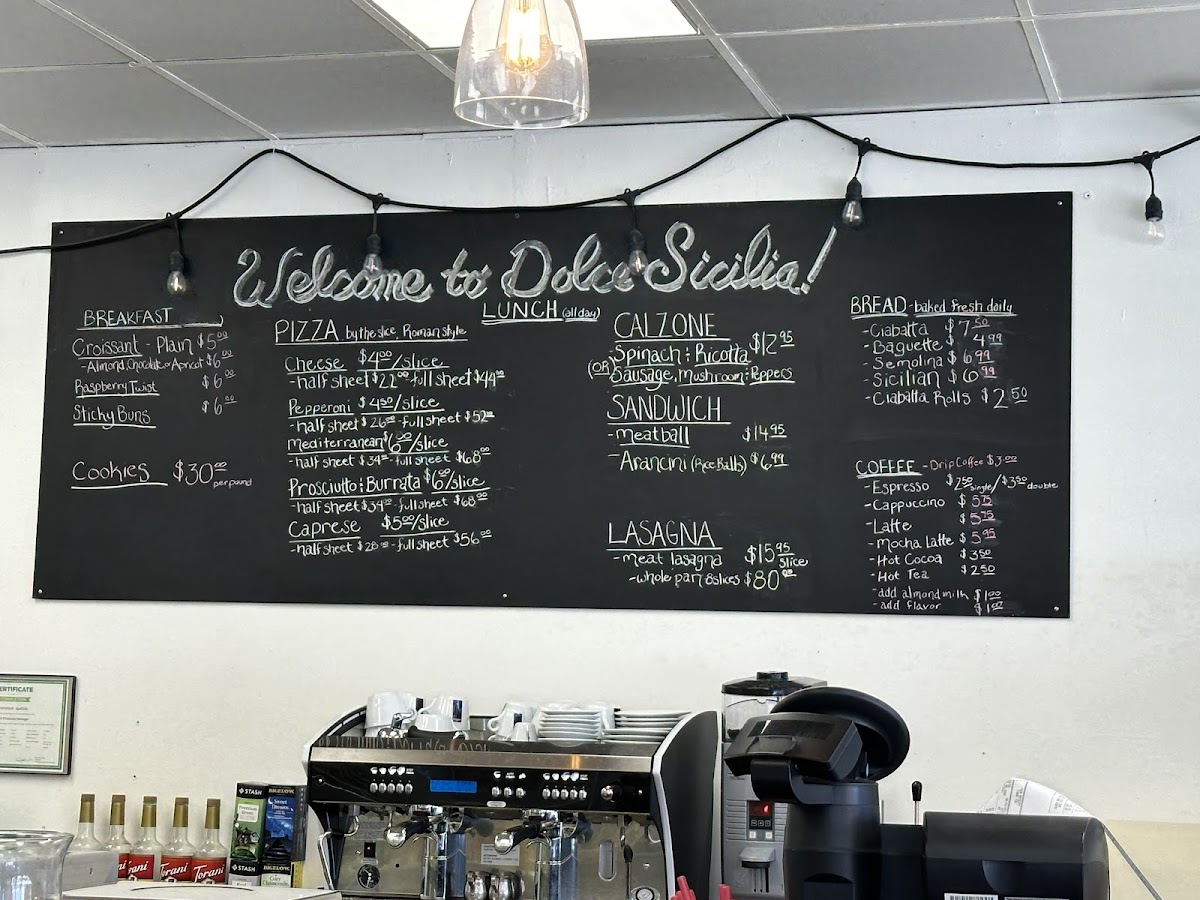 Welcome to Dolce Sicilia!
BREAKFAST
Croissant - Plain $5.00
- Almond, Chocolate or Apricot $6.00
Raspberry Twist $6.00
Sticky Buns $6.00
Cookies $30.00 per pound
LUNCH (all day)
PIZZA by the slice, Roman style
Cheese $4.00/slice
- half sheet $22.00 - full sheet $44.00
Pepperoni $4.50/slice
- half sheet $26.00 - full sheet $52.00
Mediterranean $6.00/slice
- half sheet $34.00 - full sheet $68.00
Prosciutto & Burrata $6.00/slice
- half sheet $34.00 - full sheet $68.00
Caprese $5.00/slice
- half sheet $28.00 - full sheet $56.00
CALZONE
Spinach & Ricotta $12.95
(OR) Sausage, Mushroom & Peppers
SANDWICH
- meatball $14.95
- Arancini (Rice Balls) $6.99
LASAGNA
- meat lasagna $15.95 slice
- whole pan 8 slices $80.00
BREAD - baked fresh daily
- Ciabatta $7.50
- Baguette $4.99
- Semolina $6.99
- Sicilian $6.99
- Ciabatta Rolls $2.50
COFFEE - Drip Coffee $3.00
- Espresso $2.50 single/$3.50 double
- Cappuccino $5.75
- Latte $5.75
- Mocha Latte $5.95
- Hot Cocoa $3.50
- Hot Tea $2.50
- add almond milk $1.00
- add flavor $1.00
CERTIFICATE
STASH
BIGELOW
STASH
BIGELOW
Torani
Torani